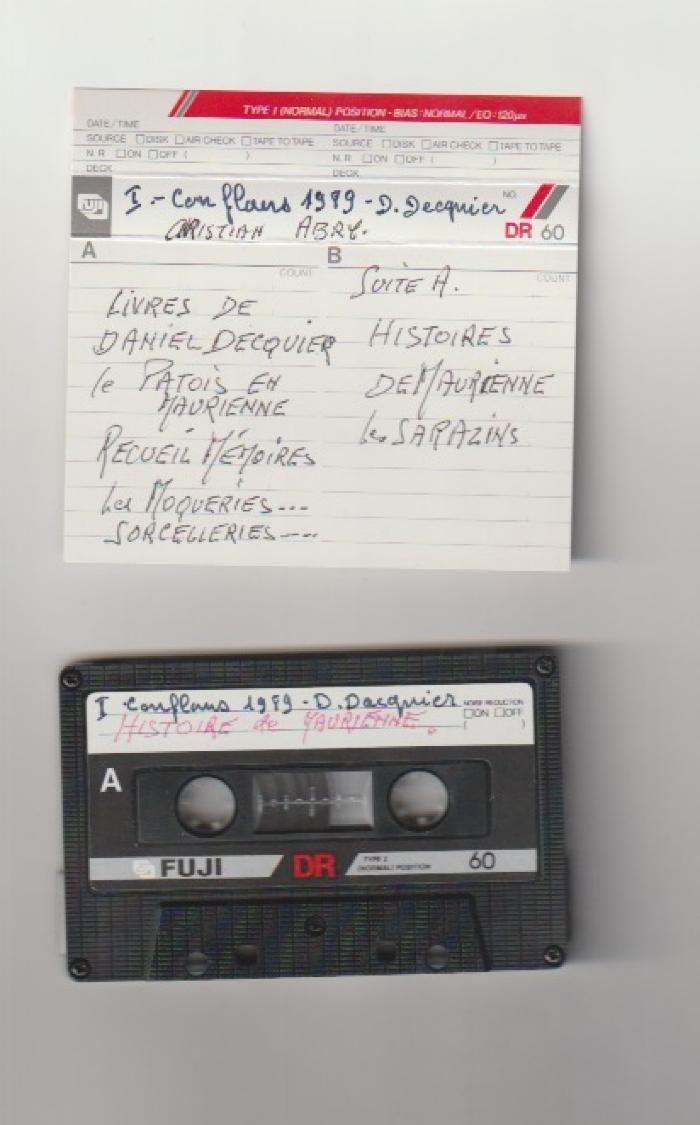 TYPE I (NORMAL) POSITION · BIAS: NORMAL / EQ: 120µs
DATE/TIME DATE/TIME
SOURCE □DISK □AIR CHECK □TAPE TO TAPE SOURCE □DISK □AIR CHECK □TAPE TO TAPE
N.R. □ON □OFF ( ) N.R. □ON □OFF ( )
DECK DECK
I - Conflans 1989 - D. Decquier NO.
CHRISTIAN ABRY. DR 60
A B
COUNT COUNT
LIVRES DE
DANIEL DECQUIER
le PATOIS EN
MAURIENNE
RECUEIL MÉMOIRES
les MOQUERIES...
SORCELLERIES...
SUITE A.
HISTOIRES
DE MAURIENNE
les SARAZINS
I Conflans 1989 - D. Dasquier NOISE REDUCTION
□ON □OFF
HISTOIRE de MAURIENNE. ( )
A
FUJI DR TYPE I (NORMAL) POSITION 60